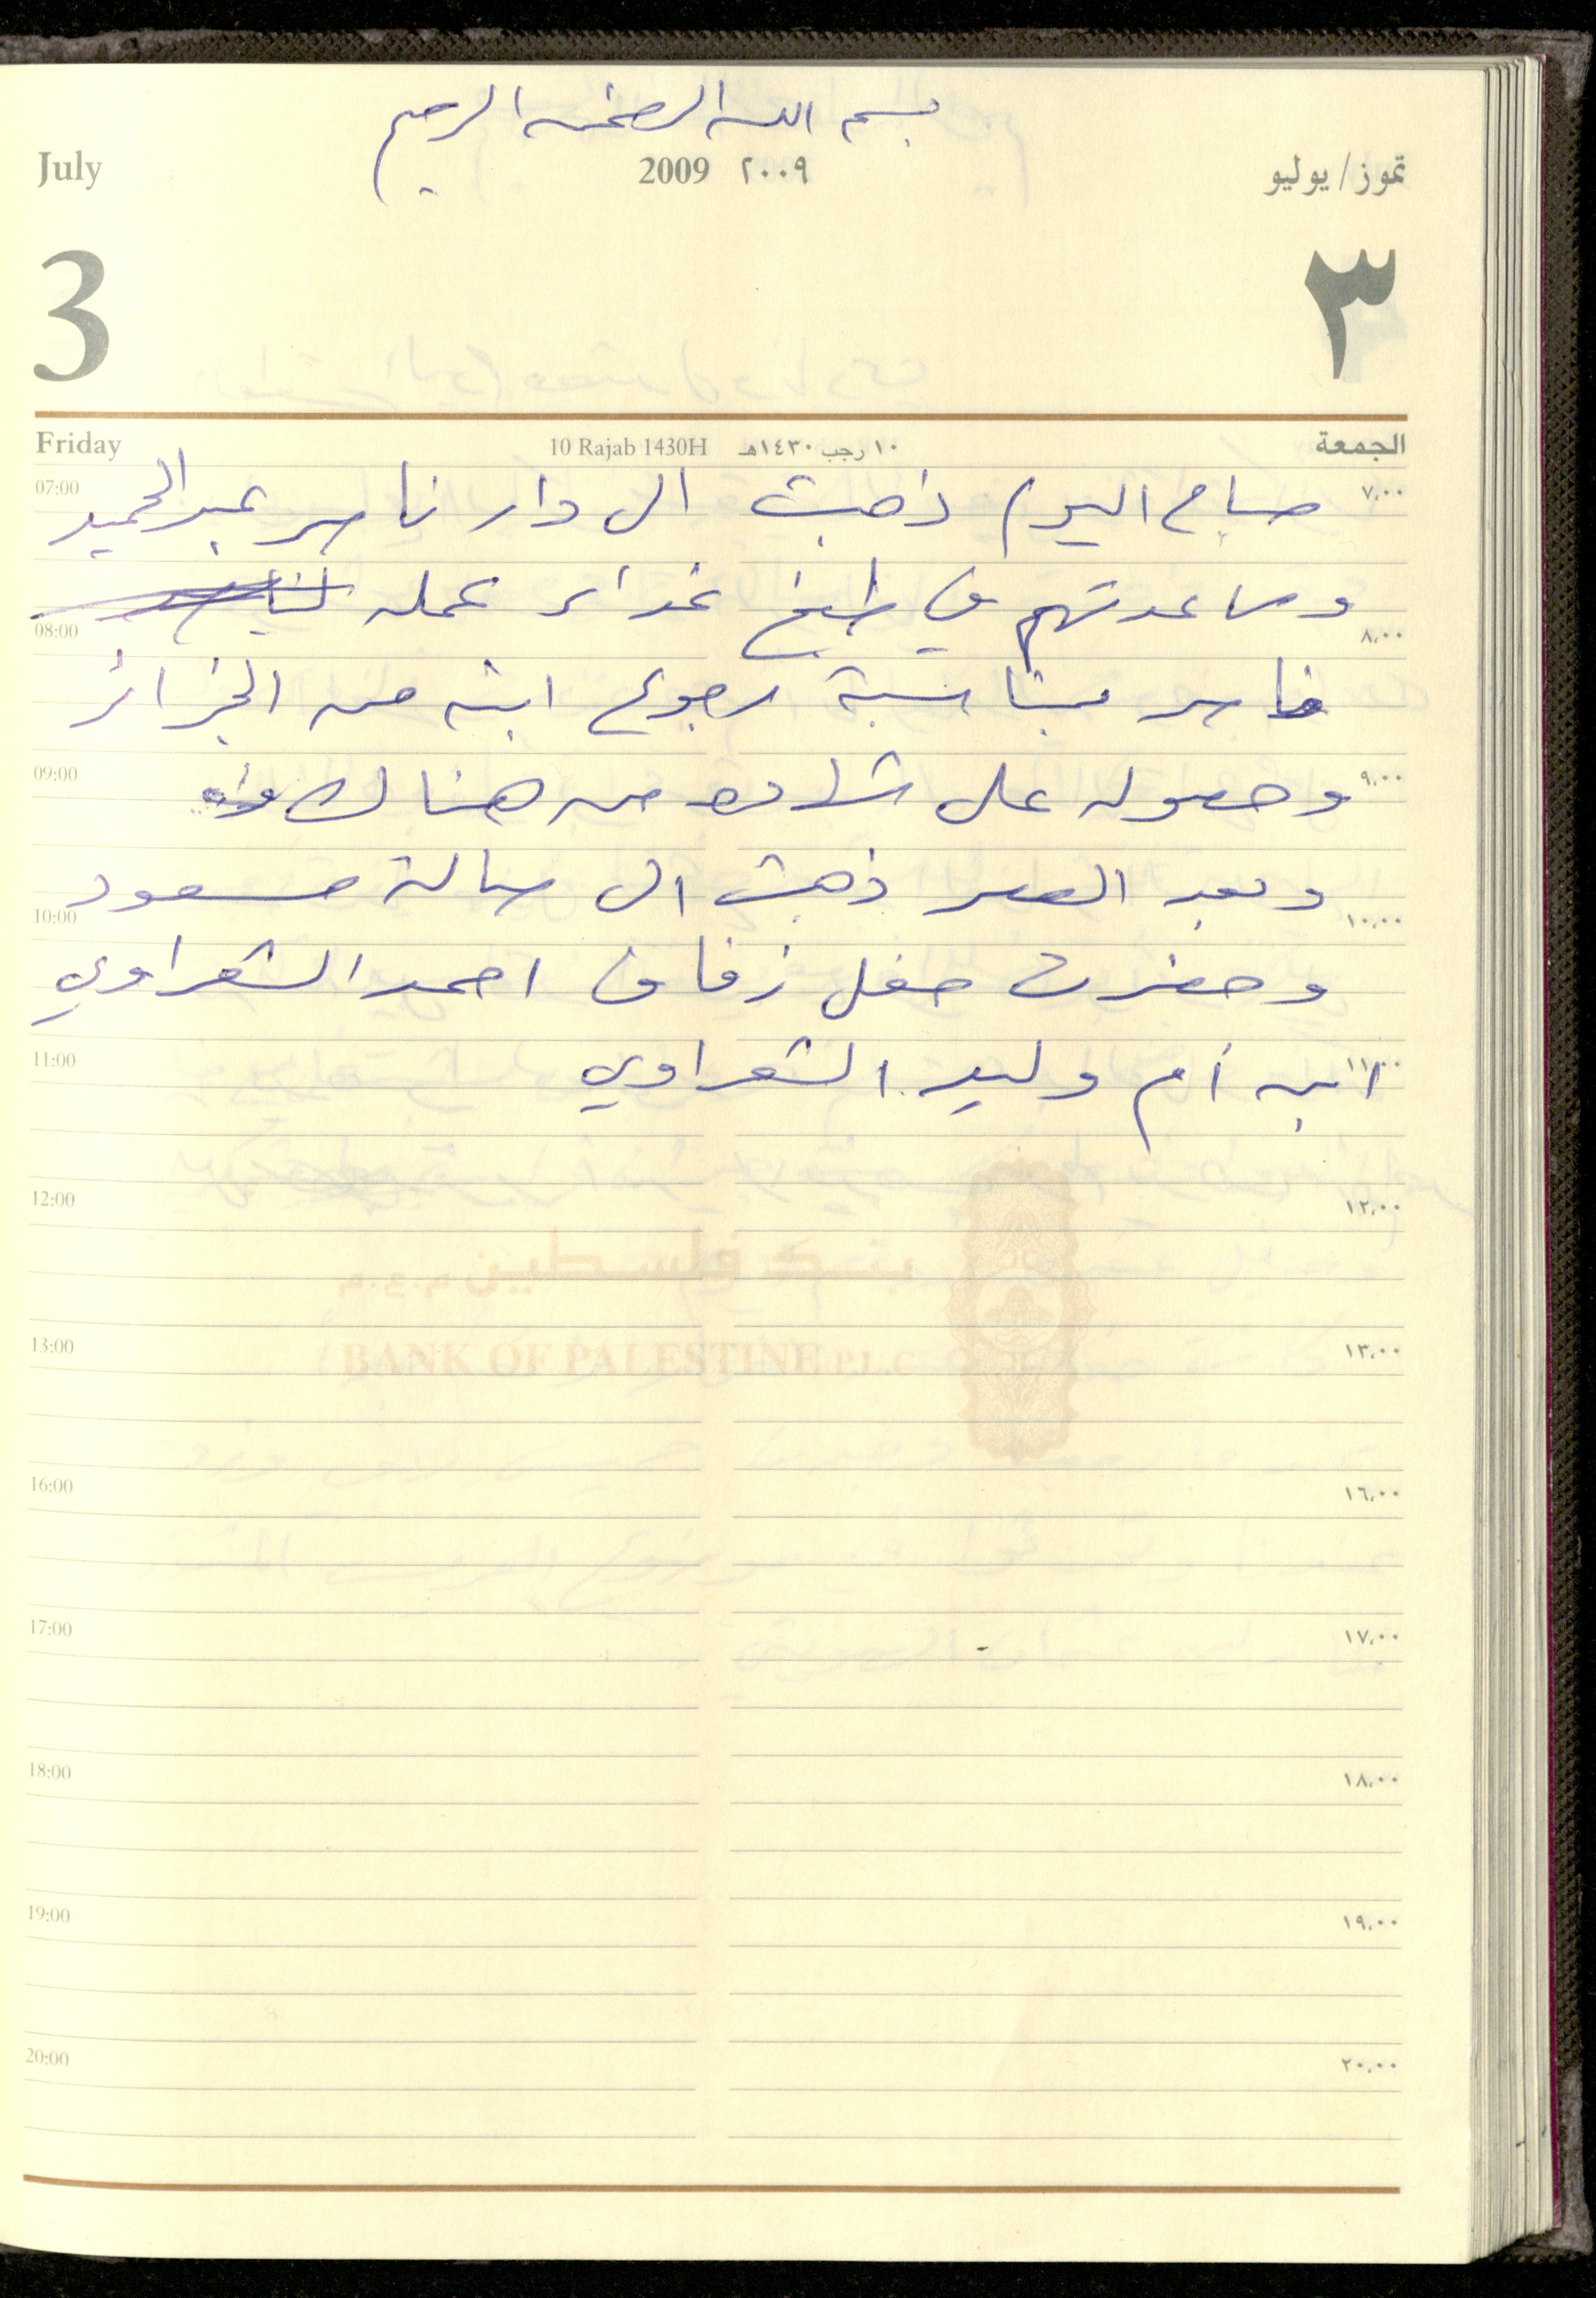 بسم الله الرحمن الرحيم
July 2009 ٢٠٠٩ تموز/يوليو
3 ٣
Friday 10 Rajab 1430H ١٠ رجب ١٤٣٠هـ الجمعة
07:00 ٧,٠٠
صباح اليوم ذهبت الى دار ناسر عبد الحميد
وساعدتهم في طبخ غدائر عمله
08:00 ٨,٠٠
ناسر بمناسبة رجوع ابنه من الجزائر
09:00 ٩,٠٠
وحصوله على شهادة من هناك
وبعد العصر ذهبت الى صالة مسعود
10:00 ١٠,٠٠
وحضرت حفل زفاف احمد الشعراوي
11:00 ١١,٠٠
ابن أم وليد الشعراوي
12:00 ١٢,٠٠
بنك فلسطين م.ع.م
BANK OF PALESTINE P.L.C
13:00 ١٣,٠٠
16:00 ١٦,٠٠
17:00 ١٧,٠٠
18:00 ١٨,٠٠
19:00 ١٩,٠٠
20:00 ٢٠,٠٠